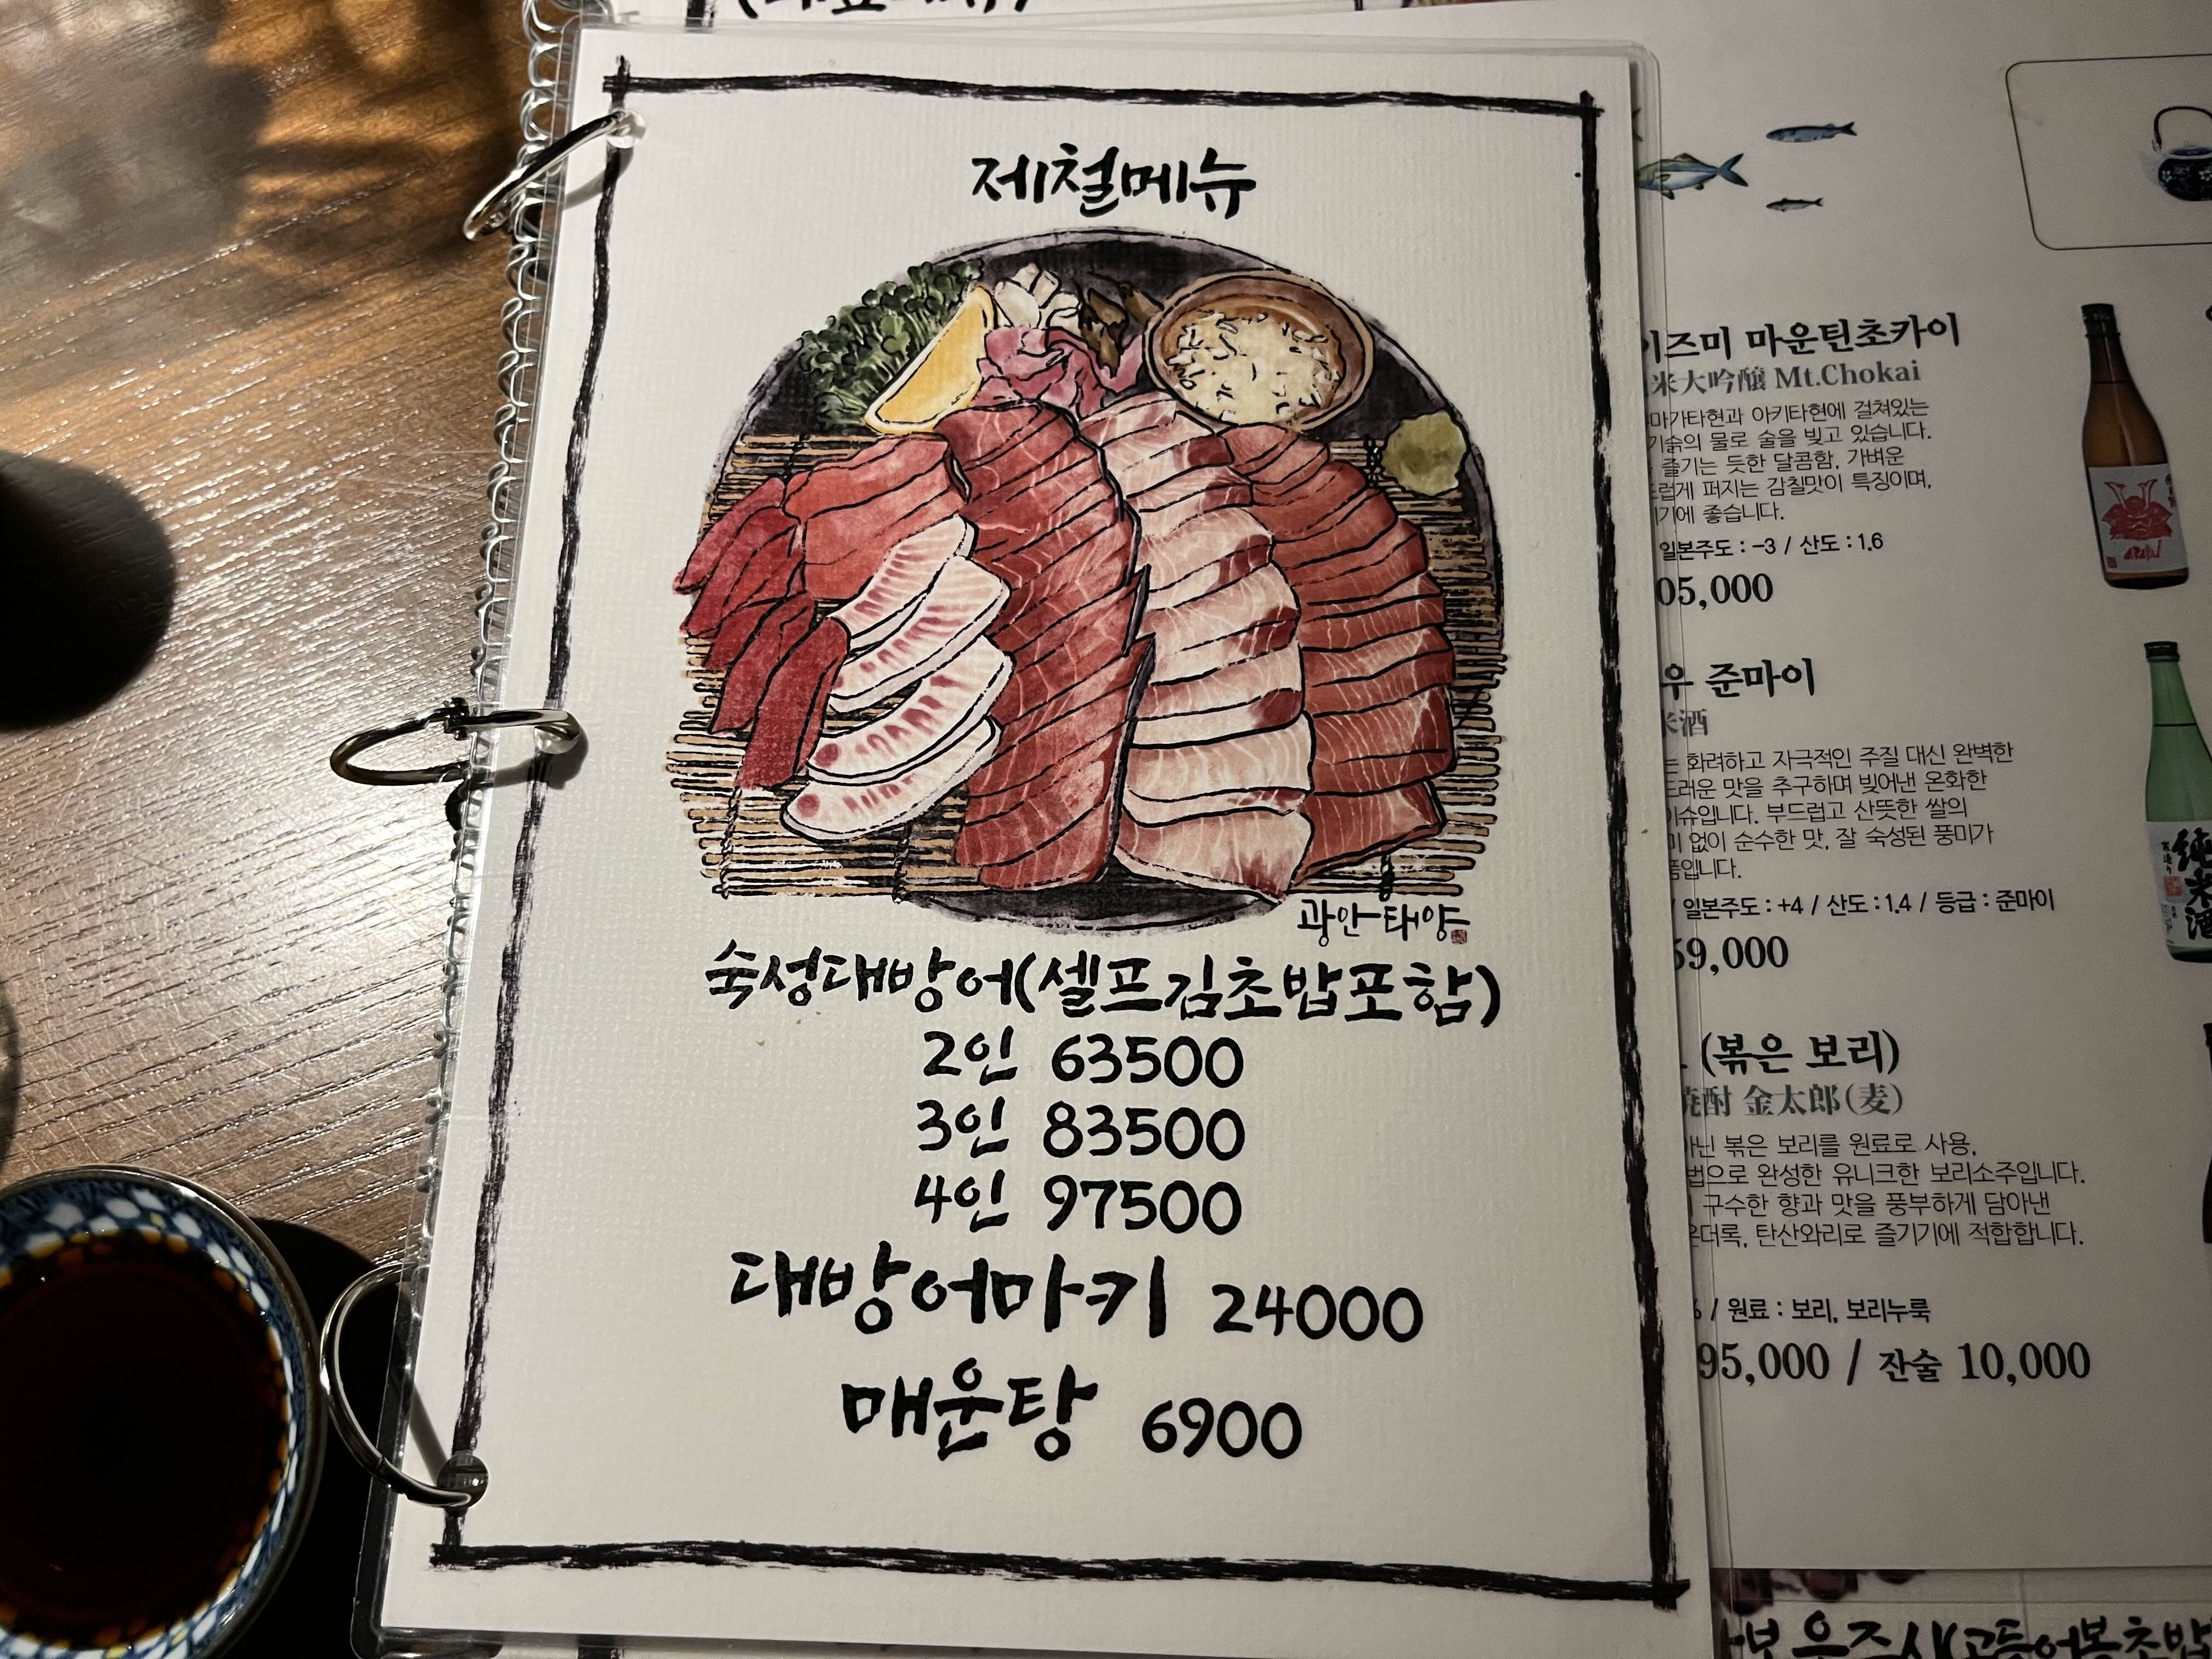 제철메뉴
광안태양
숙성대방어(셀프김초밥포함)
2인 63500
3인 83500
4인 97500
대방어마키 24000
매운탕 6900
이즈미 마운틴초카이
米大吟醸 Mt.Chokai
마가타현과 아키타현에 걸쳐있는
기슭의 물로 술을 빚고 있습니다.
즐기는 듯한 달콤함, 가벼운
드럽게 퍼지는 감칠맛이 특징이며,
기에 좋습니다.
일본주도 : -3 / 산도 : 1.6
05,000
우 준마이
米酒
는 화려하고 자극적인 주질 대신 완벽한
드러운 맛을 추구하며 빚어낸 온화한
이슈입니다. 부드럽고 산뜻한 쌀의
미 없이 순수한 맛, 잘 숙성된 풍미가
품입니다.
/ 일본주도 : +4 / 산도 : 1.4 / 등급 : 준마이
59,000
(볶은 보리)
焼酎 金太郎(麦)
아닌 볶은 보리를 원료로 사용,
법으로 완성한 유니크한 보리소주입니다.
구수한 향과 맛을 풍부하게 담아낸
온더록, 탄산와리로 즐기기에 적합합니다.
% / 원료 : 보리, 보리누룩
95,000 / 잔술 10,000